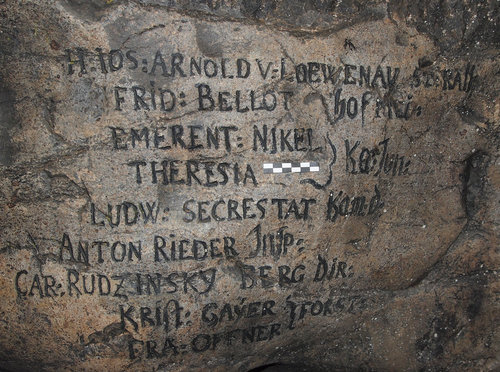 H: IOS: ARNOLD V: LOEWENAU
FRID: BELLOT hofmei:
EMERENT: NIKEL
THERESIA Ka: Jun:
LUDW: SECRESTAT Kam.d
ANTON RIEDER Insp:
CAR: RUDZINSKY BERG DIR:
Krist: GAYER FORST:
FRA: OFFNER